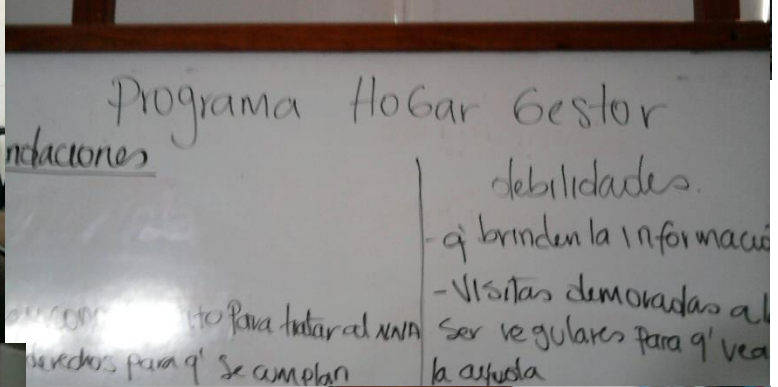 Programa HoGar Gestor
ndaciones
to Para tratar al NNA
derechos para q' se cumplan
debilidades.
- q' brinden la informació
- Visitas demoradas al
Ser regulares para q' vea
la ayuda